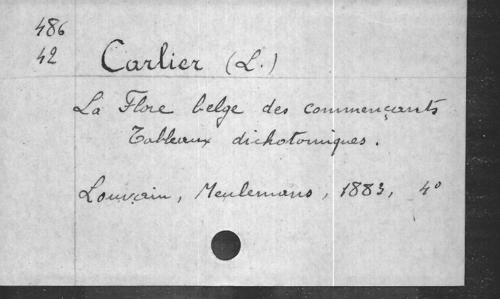 486
42
Carlier (L.)
La Flore belge des commençants
Tableaux dichotomiques.
Louvain, Meulemans, 1883, 4°